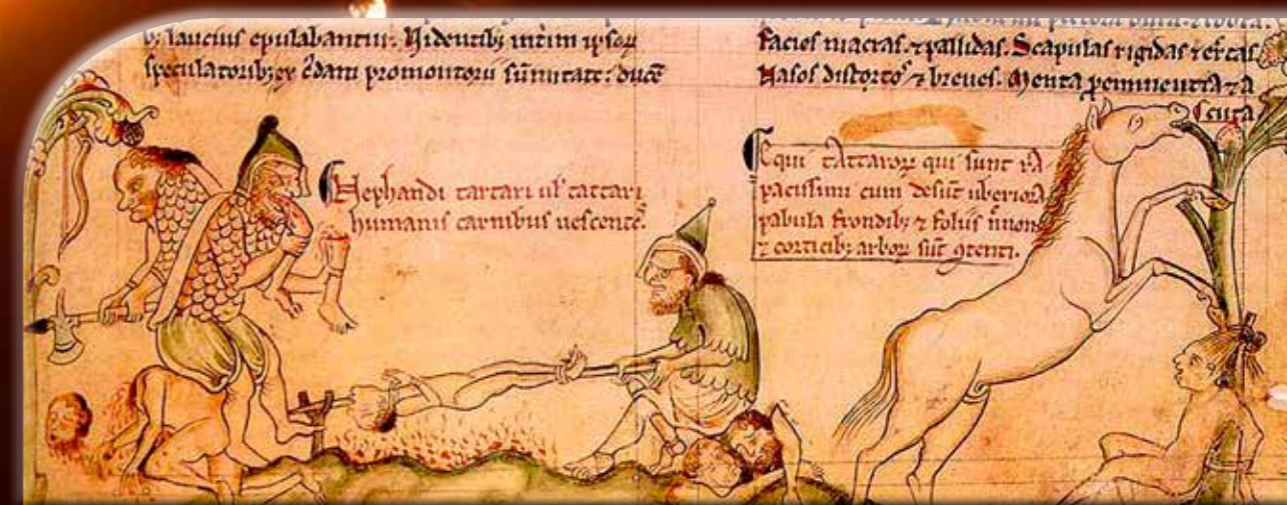 laucius epulabantur. Videntibꝫ int̃im ipsoꝝ
speculatoribꝫ ex c̃dam promontorii sũmitate: ducẽ
facies macras. ⁊ pallidas. Scapulas rigidas ⁊ er̃ctas
Nasos distortoˢ ⁊ breues. Menta p̱eminentia ⁊ a
cuta
Nephandi tartari uł tattari
humanis carnibus uescenteˢ.
Equi tattaroꝝ qui sunt rã
pacissimi cum desũt uberiora
pabula frondibꝫ ⁊ foliis
⁊ corticibꝫ arboꝝ sũt ꝯtenti.